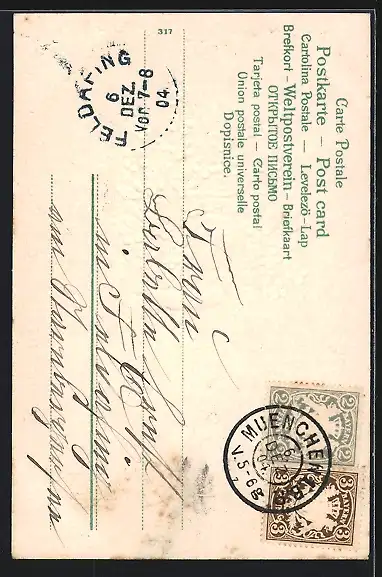 Carte Postale
Postkarte — Post card
Cartolina Postale — Levelező-Lap
Brefkort — Weltpostverein — Briefkaart
ОТКРЫТОЕ ПИСЬМО
Tarjeta postal — Carto postal
Union postale universelle
Dopisnice.
317
FELDAFING
6
DEZ
VOR. 7-8
04
MUENCHEN
V. 5-6
2 2
3 3
Frau
in Feldafing
am Starnbergersee